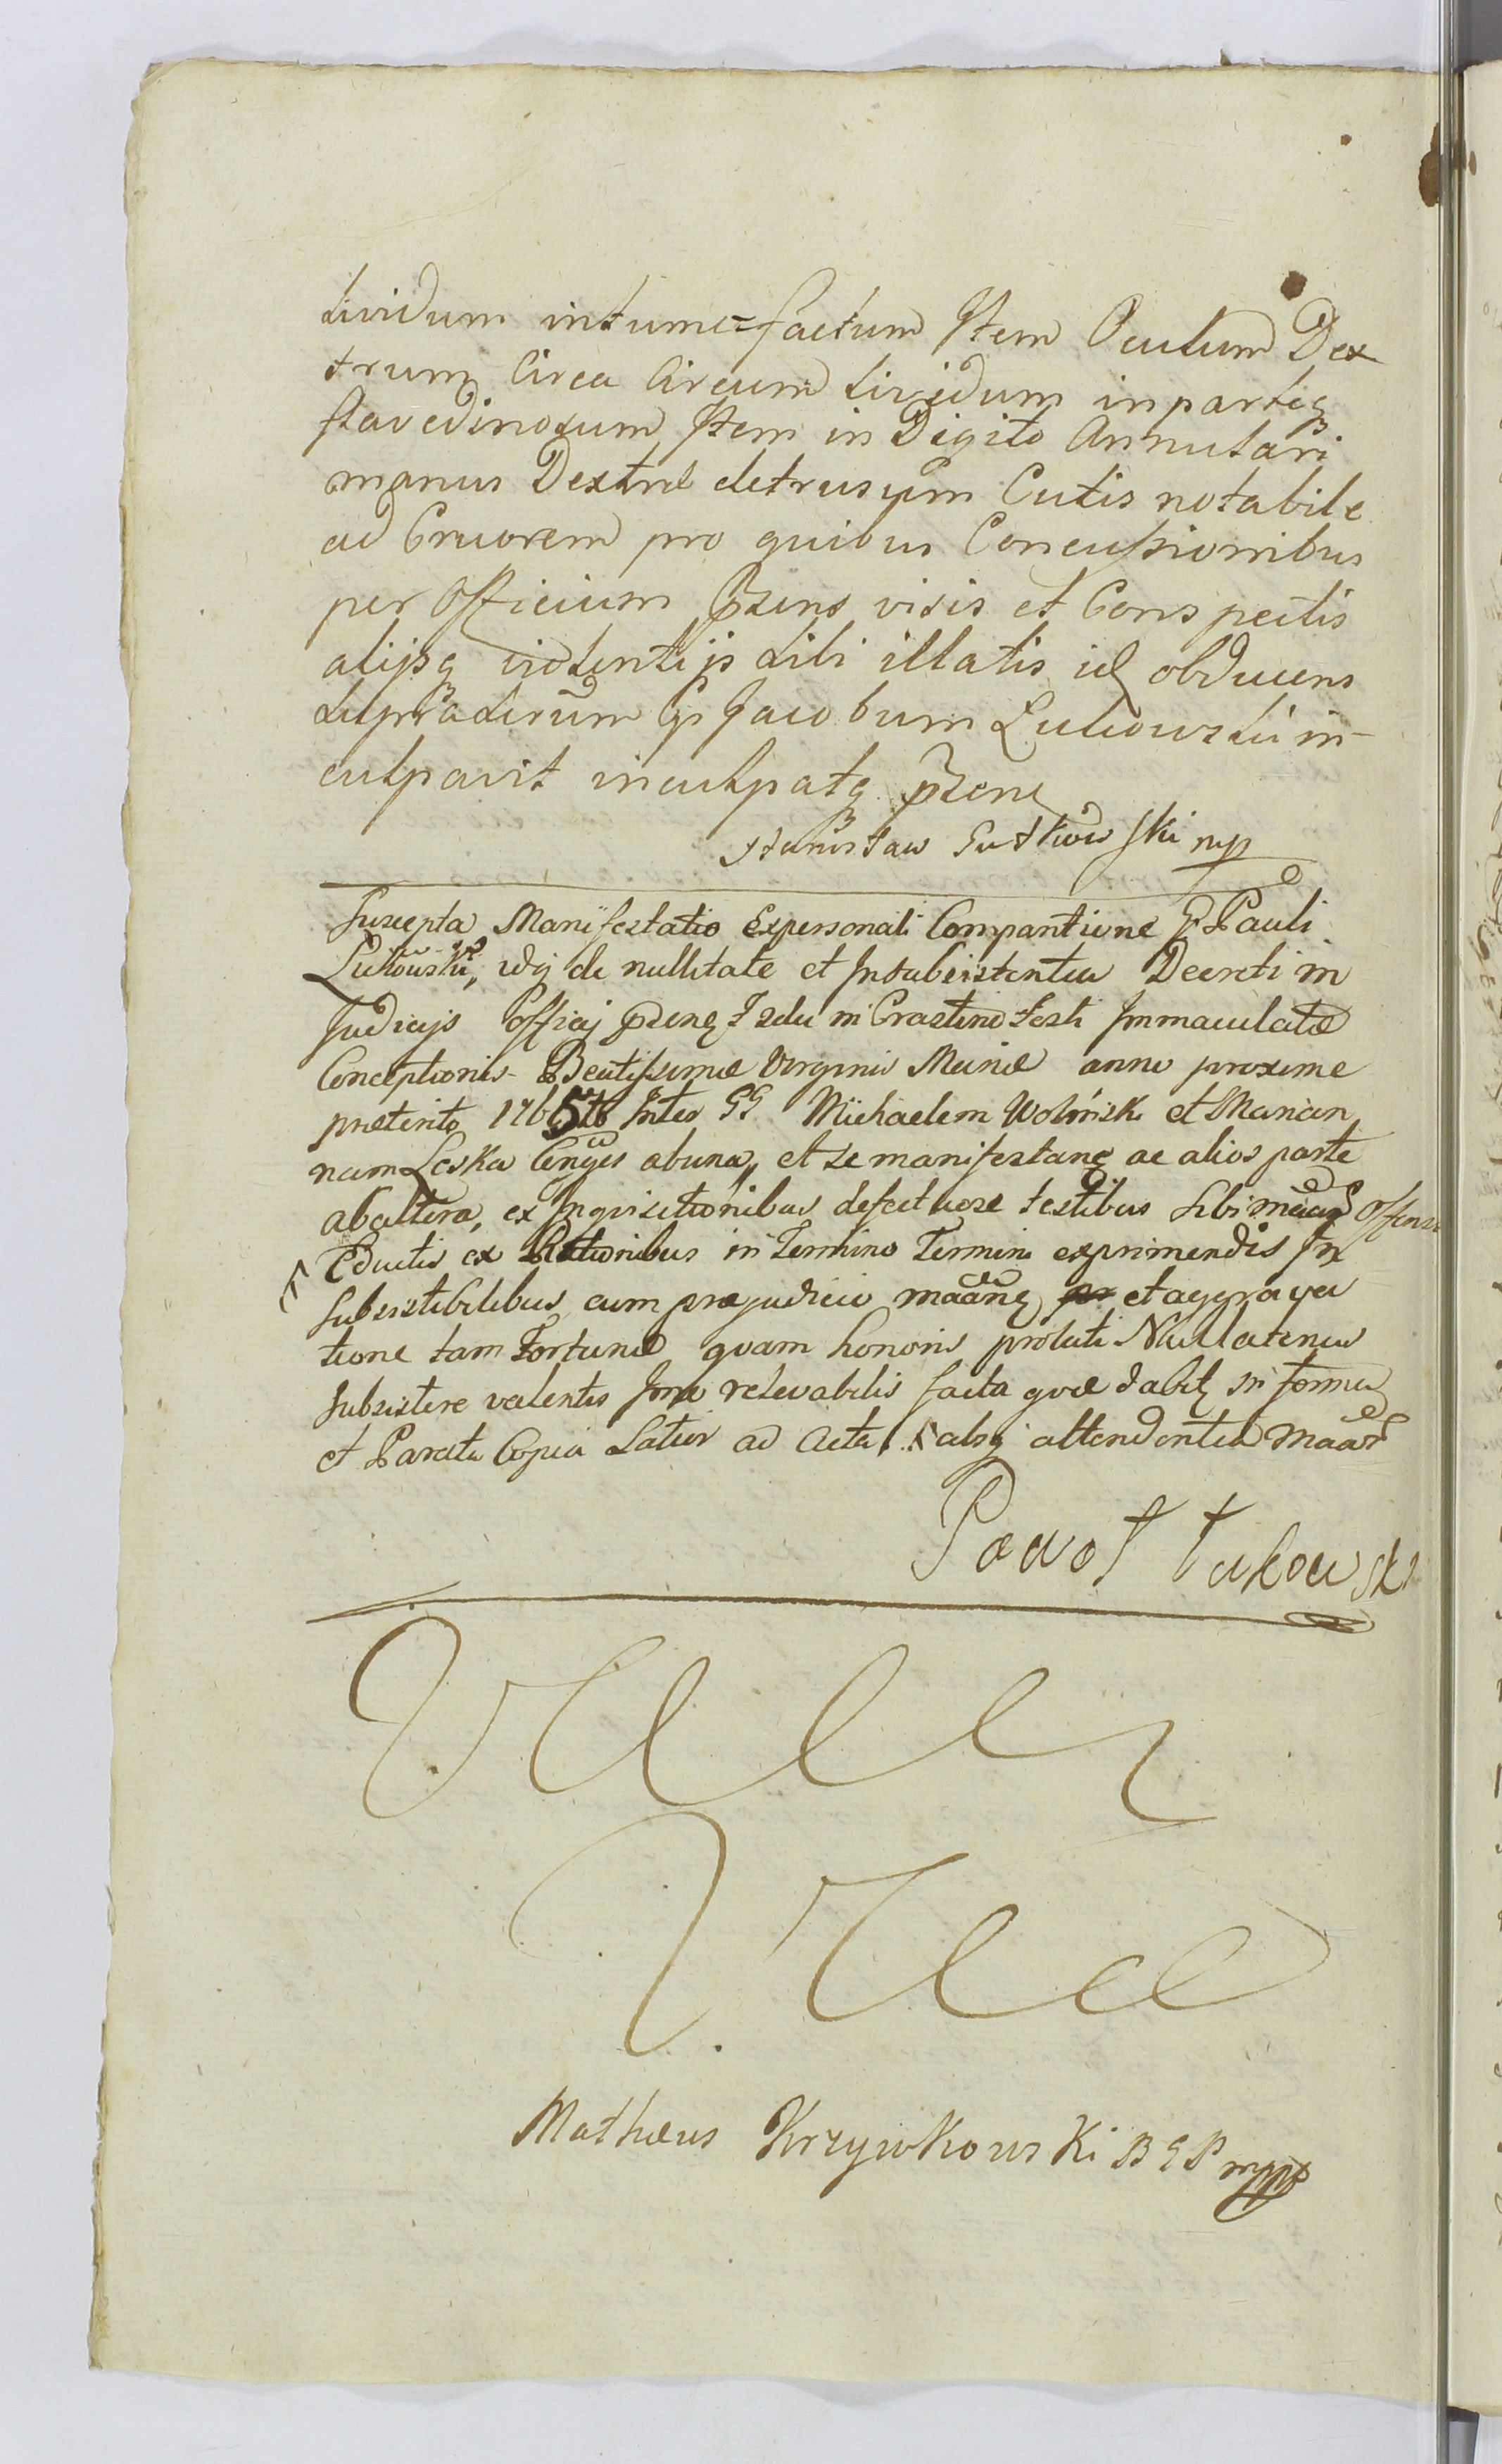 lividum intume=factum Item Oculum Dex
trum Circa Circum lividum in partiq
flavedinosum Item in Digito Annulari
manus Dextræ detrusum Cutis notabile
ad Cruorem pro quibus Concussionibus
per Officium prens visis et Conspectis
alijsq violentijs sibi illatis id obducens
Gs Jacobum Lukowski in-
culpavit inculpatq prene
Stanisław Sutkowski mp
Suscepta Manifestatio Expersonali Comparitione G Pauli
Lukowski, de nullitate et Insubsistentia Decreti in
Judicijs Officij in Crastino Festi Immaculatæ
Conceptionis Beatissimæ Virginis Mariæ anno proxime
præterito 1765to Inter GG Michaelem Woliński et Marian
nam Leska Conges abuna, et se manifestanq ac alios parte
abaltera, ex Inquisitionibus defectuose testibus sibi
Eductis ex Rationibus in Termino Termini exprimendis In
subsistibilibus cum præjudicio et aggrava
tione tam Fortunæ quam honoris prolati Nullatenus
subsistere valentis relevabilis facta quæ dabit in forma
et Parata Copia Latior ad Acta absq attendentia
Paweł Łukowski
Mathæus Krzywkowski B G P mpp